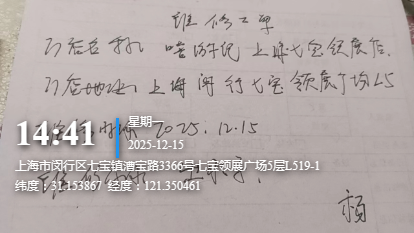 维修工单
门店名称 嘻游记 上海七宝领展店
门店地址 上海闵行七宝领展广场L5
2025.12.15
14:41
星期一
2025-12-15
上海市闵行区七宝镇漕宝路3366号七宝领展广场5层L519-1
纬度：31.153867 经度：121.350461